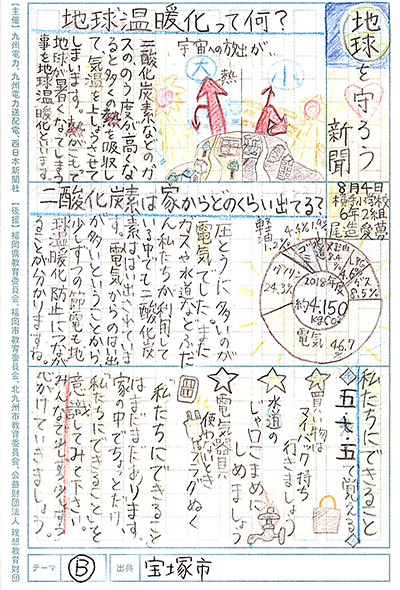 地球を守ろう
新聞
8月4日
地球温暖化って何？
宇宙への放出が…
大
熱
小
二酸化炭素などのガ
スののう度が高くな
ると多くの熱を吸収し
て、気温を上しょうさせて
しまいます。熱がこもって
地球が暑くなってしまう
事を地球温暖化といいます。
二酸化炭素は家からどのくらい出てる？
2018年度
約4,150
kgCO2
電気
46.7
ガソリン
24.3%
ガス
8.5%
軽油
圧とう的に多いのが
電気でした。また、
ガスや水道などふだ
ん私たちが利用して
いる中でも二酸化炭
素ははい出されていま
す。電気からのはい出
が多いということから、
少しずつの節電も地
球温暖化防止につなが
ることが分かりますね。
私たちにできること
五・七・五で覚える
☆買い物は
マイバック持ち
行きましょう
☆水道の
じゃ口こまめに
しめましょう
☆電気器具
使わないとき
プラグぬく
私たちにできること
はまだまだあります。
家の中でちょっとだけ、
私たちにできることを
意識してみて下さい。
みんなで少しずつ
心がけていきましょう。
テーマ B 出典 宝塚市
【主催】九州電力、九州電力送配電、西日本新聞社 【後援】福岡県教育委員会、福岡市教育委員会、北九州市教育委員会、公益財団法人 理想教育財団